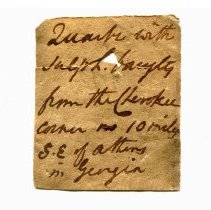 Quartz with
Sulph. Baryts
from the Cherokee
corner 10 miles
S.E of athens
in Georgia